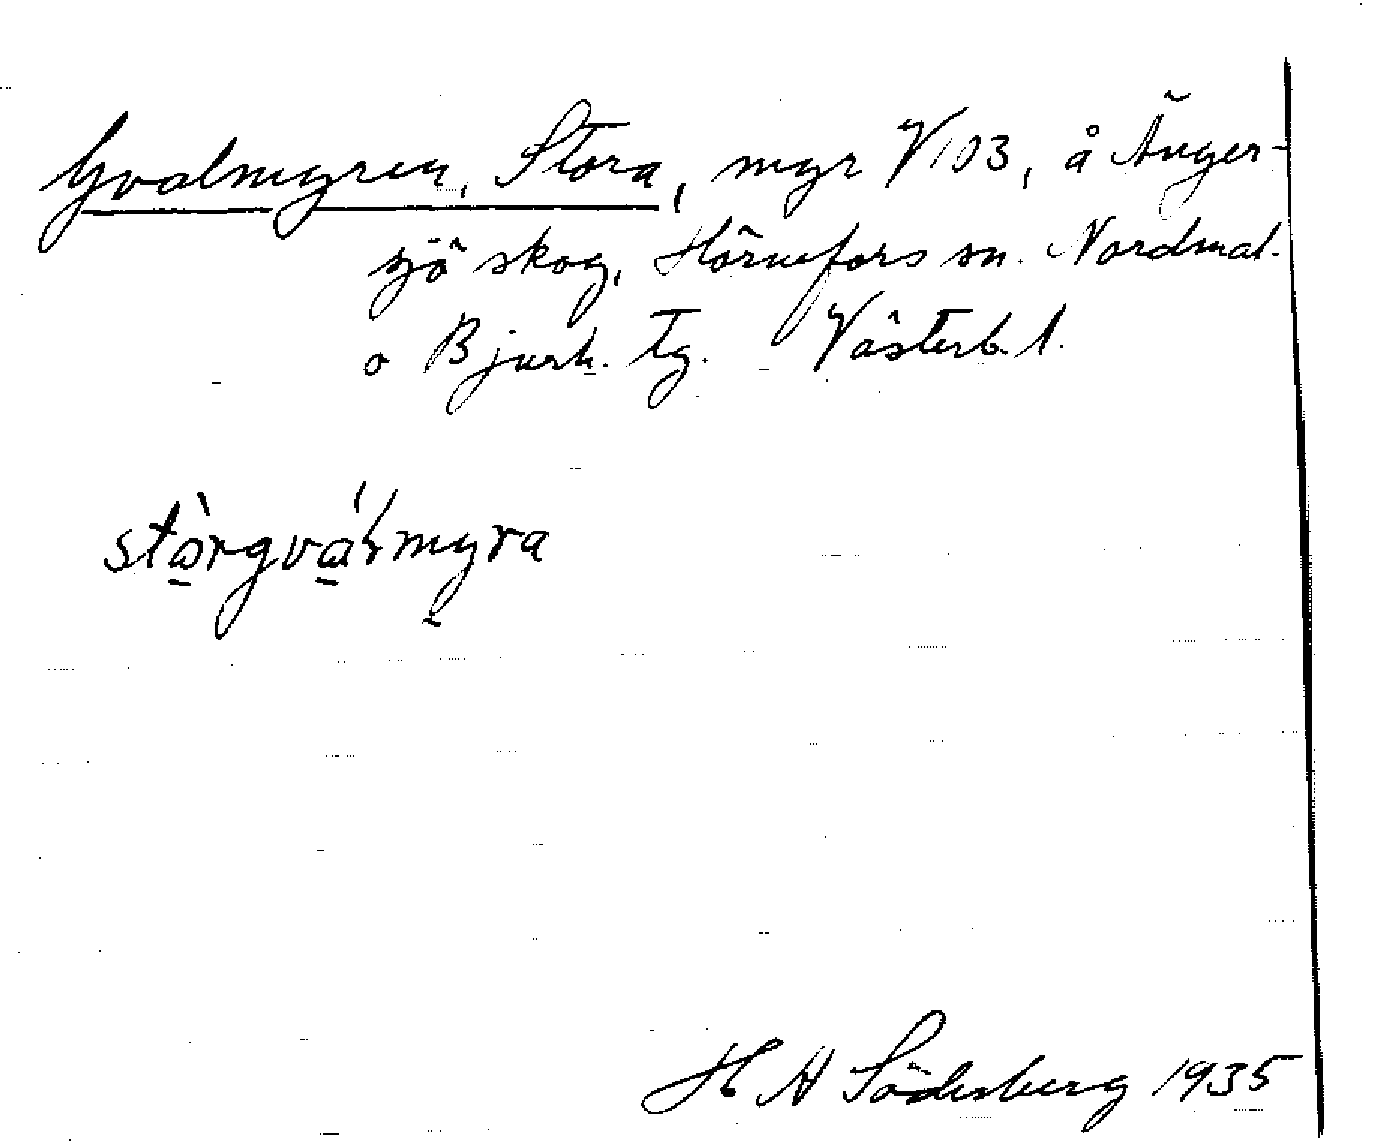 Gvalmyren, Stora, myr V103, å Ånger-
sjö skog, Hörnefors sn. Nordmal.
o Bjurh. tg. Västerb. l.
stòrgválmyra
H A Söderberg 1935